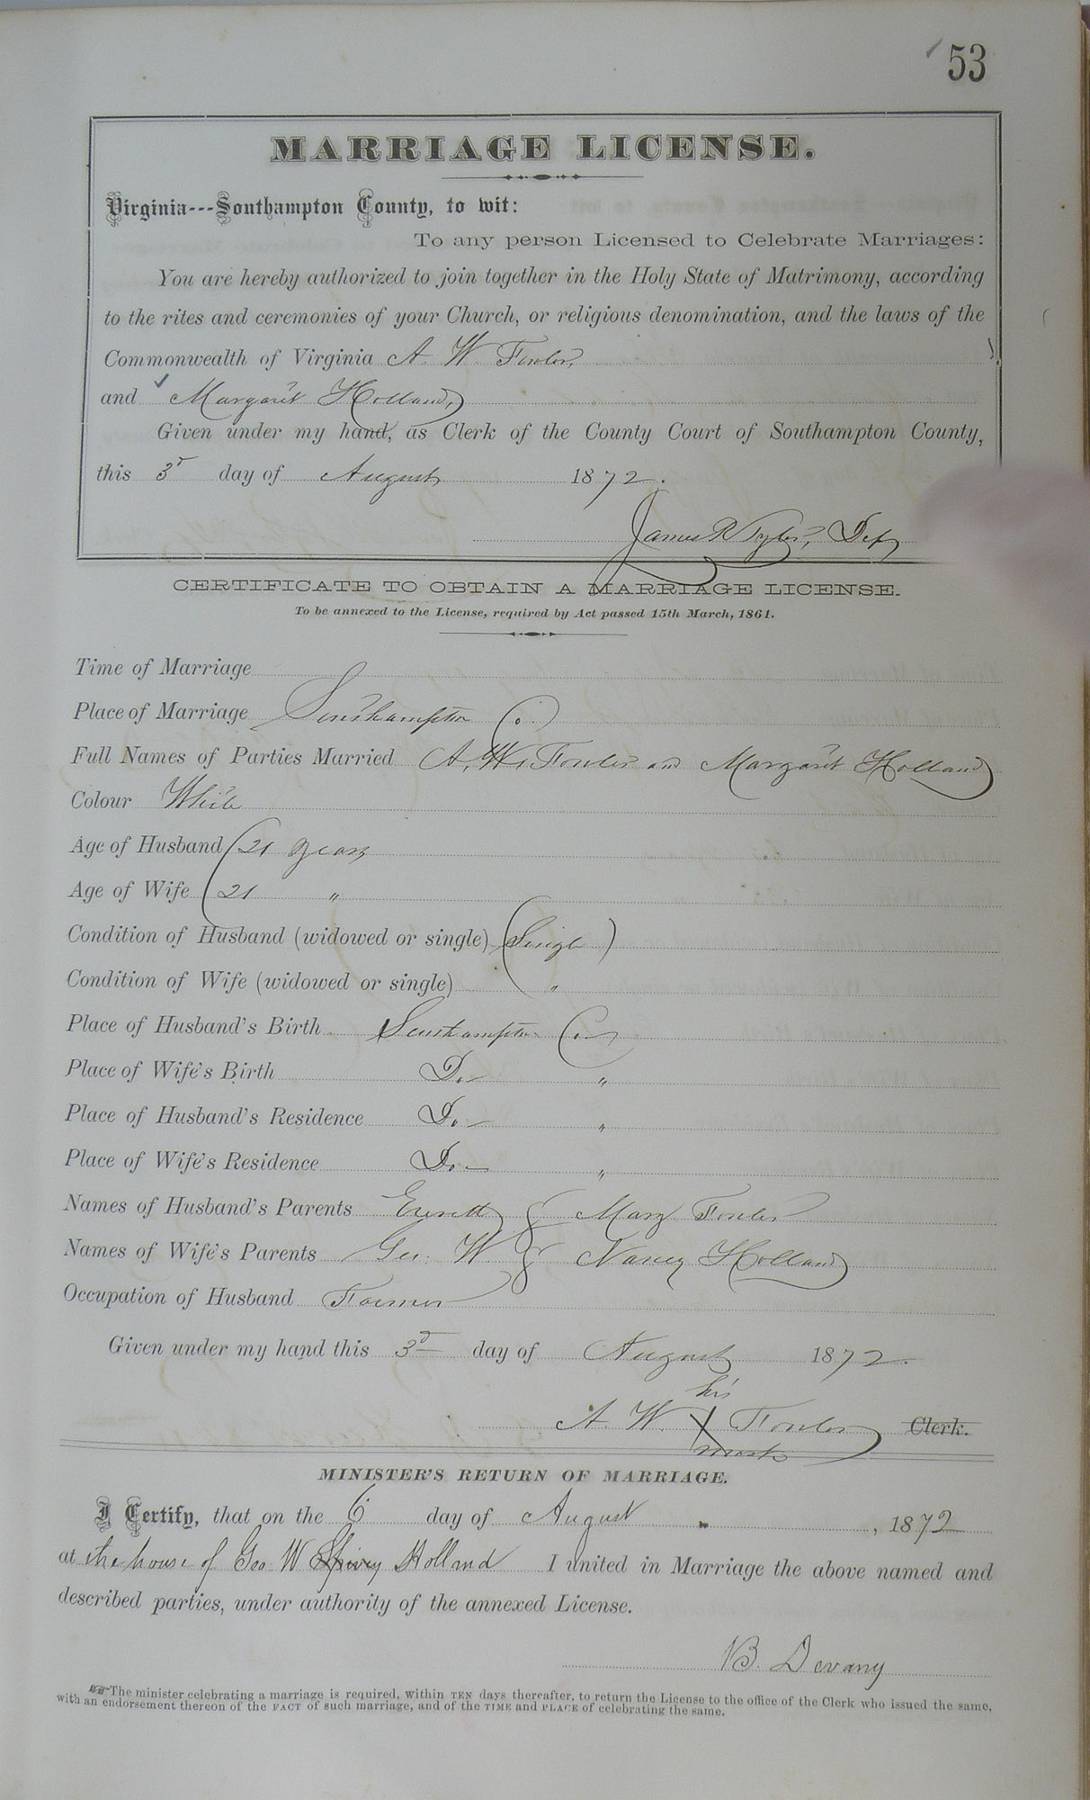 53
MARRIAGE LICENSE.
Virginia---Southampton County, to wit:
To any person Licensed to Celebrate Marriages:
You are hereby authorized to join together in the Holy State of Matrimony, according
to the rites and ceremonies of your Church, or religious denomination, and the laws of the
Commonwealth of Virginia A. W. Fowler,
and Margaret Holland,
Given under my hand, as Clerk of the County Court of Southampton County,
this 3d day of August 1872.
James R Tyler, Dep
CERTIFICATE TO OBTAIN A MARRIAGE LICENSE.
To be annexed to the License, required by Act passed 15th March, 1861.
Time of Marriage
Place of Marriage Southampton Co.
Full Names of Parties Married A. W. Fowler and Margaret Holland
Colour White
Age of Husband 21 years
Age of Wife 21 "
Condition of Husband (widowed or single) Single
Condition of Wife (widowed or single) "
Place of Husband's Birth Southampton Co.
Place of Wife's Birth Do "
Place of Husband's Residence Do "
Place of Wife's Residence Do "
Names of Husband's Parents Everett & Mary Fowler
Names of Wife's Parents Geo. W. & Nancy Holland
Occupation of Husband Farmer
Given under my hand this 3d day of August 1872.
his
A. W. X Fowler Clerk.
mark
MINISTER'S RETURN OF MARRIAGE.
I Certify, that on the 6 day of August, 1872
at the house of Geo W Spivey Holland I united in Marriage the above named and
described parties, under authority of the annexed License.
B. Devany
The minister celebrating a marriage is required, within TEN days thereafter, to return the License to the office of the Clerk who issued the same,
with an endorsement thereon of the FACT of such marriage, and of the TIME and PLACE of celebrating the same.